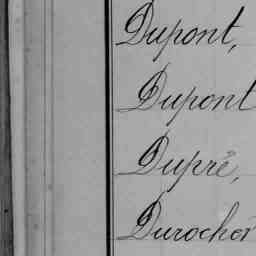 Dupont,
Dupont
Dupré,
Durocher